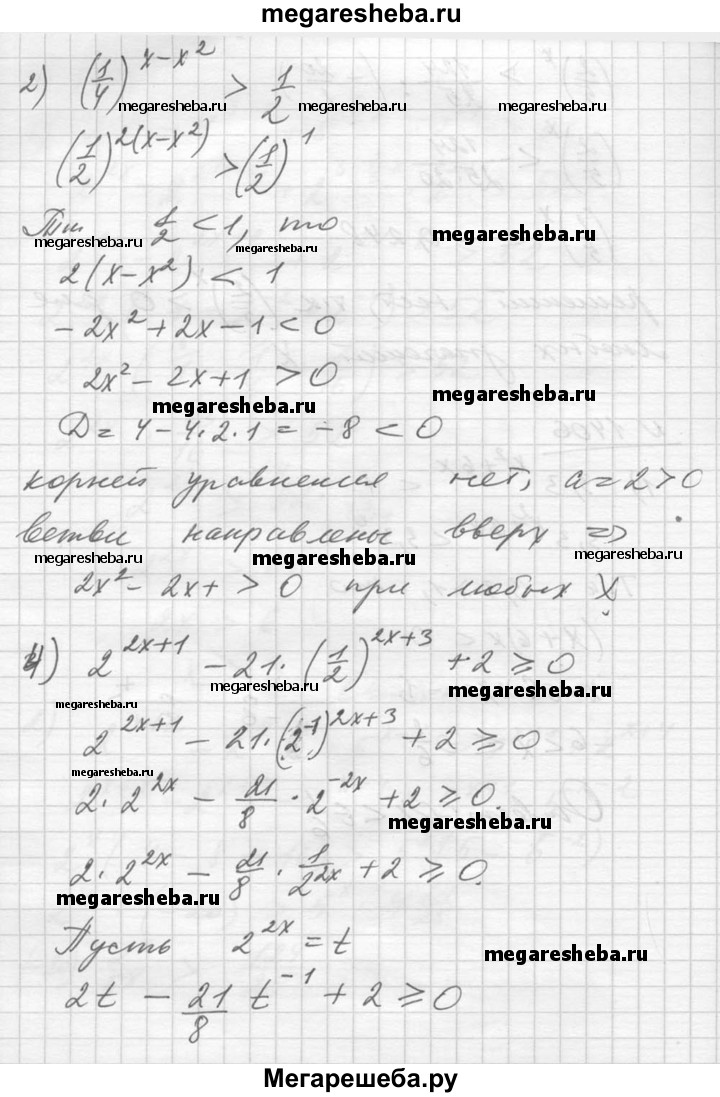 megaresheba.ru
2) (1/4)^(x-x²) > 1/2
megaresheba.ru megaresheba.ru megaresheba.ru
(1/2)^(2(x-x²)) > (1/2)^1
Т.к. 1/2 < 1, то
megaresheba.ru megaresheba.ru megaresheba.ru
2(x-x²) < 1
-2x²+2x-1<0
2x²-2x+1 >0
megaresheba.ru megaresheba.ru
D = 4-4·2·1 = -8 < 0
корней уравнения нет, a=2>0
ветви направлены вверх =>
megaresheba.ru megaresheba.ru megaresheba.ru
2x²-2x+ > 0 при любых x
4) 2^(2x+1) - 21·(1/2)^(2x+3) +2 ≥ 0
megaresheba.ru megaresheba.ru
megaresheba.ru
2^(2x+1) - 21·(2^-1)^(2x+3) + 2 ≥ 0
megaresheba.ru
2·2^(2x) - 21/8 · 2^(-2x) +2 ≥ 0.
megaresheba.ru
2·2^(2x) - 21/8 · 1/2^(2x) +2 ≥ 0.
megaresheba.ru
Пусть 2^(2x) = t
megaresheba.ru
2t - 21/8 t^-1 + 2 ≥ 0
Мегарешеба.ру